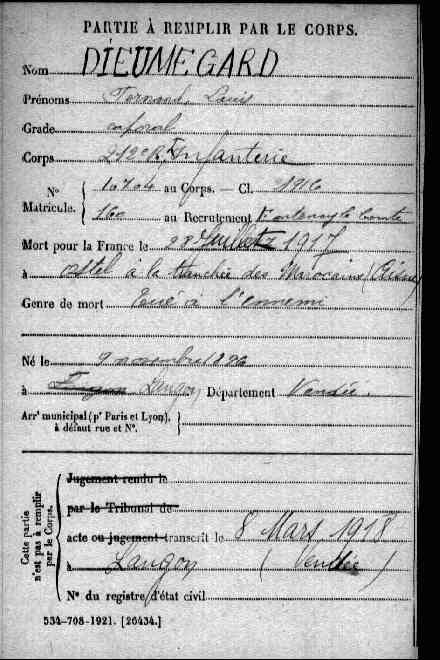 PARTIE À REMPLIR PAR LE CORPS.
Nom DIEUMEGARD
Prénoms Fernand, Louis
Grade caporal
Corps 212e Rt Infanterie
N° Matricule. { 10704 au Corps. — Cl. 1916
160 au Recrutement Fontenay le Comte
Mort pour la France le 28 Juillet 1917
à Ostel à la tranchée des Marocains (Aisne)
Genre de mort Tué à l'ennemi
Né le 9 novembre 1896
à Langon Département Vendée.
Arrt municipal (pr Paris et Lyon),
à défaut rue et N°.
Cette partie n'est pas à remplir par le Corps.
Jugement rendu le
par le Tribunal de
acte ou jugement transcrit le 8 Mars 1918
à Langon (Vendée)
N° du registre d'état civil
534-708-1921. [26434.]